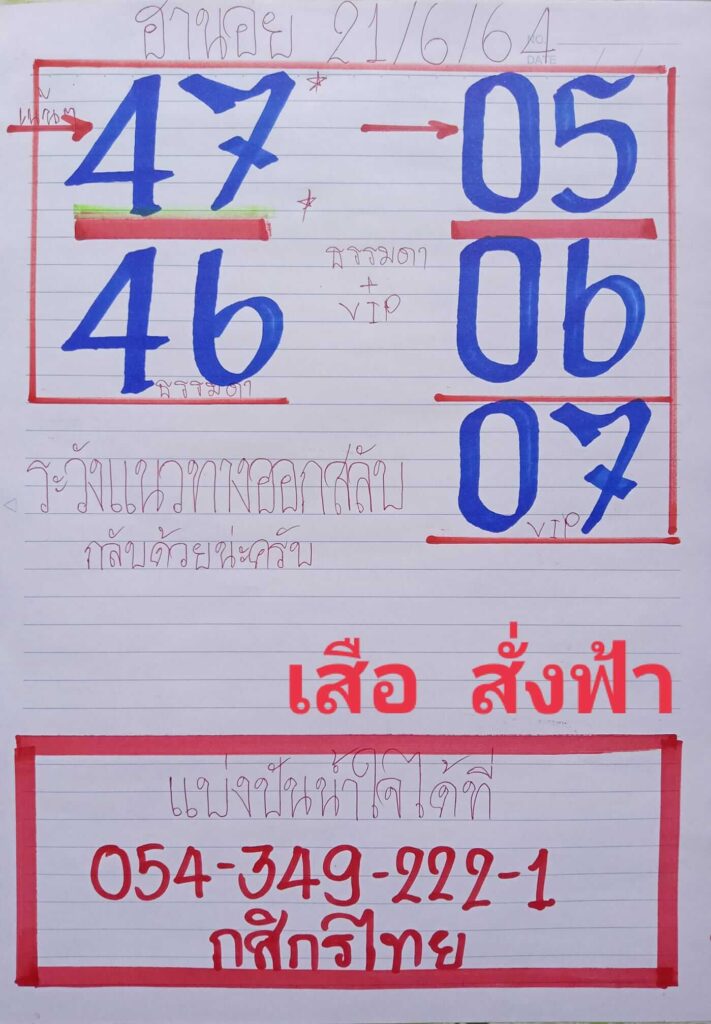 ฮานอย 21/6/64
NO.
DATE
เน้นๆ 47 05
46 ธรรมดา + VIP 06
ธรรมดา
07
VIP
ระวังแนวทางออกสลับ
กลับด้วยน่ะครับ
เสือ สั่งฟ้า
แบ่งปันน้ำใจได้ที่
054-349-222-1
กสิกรไทย